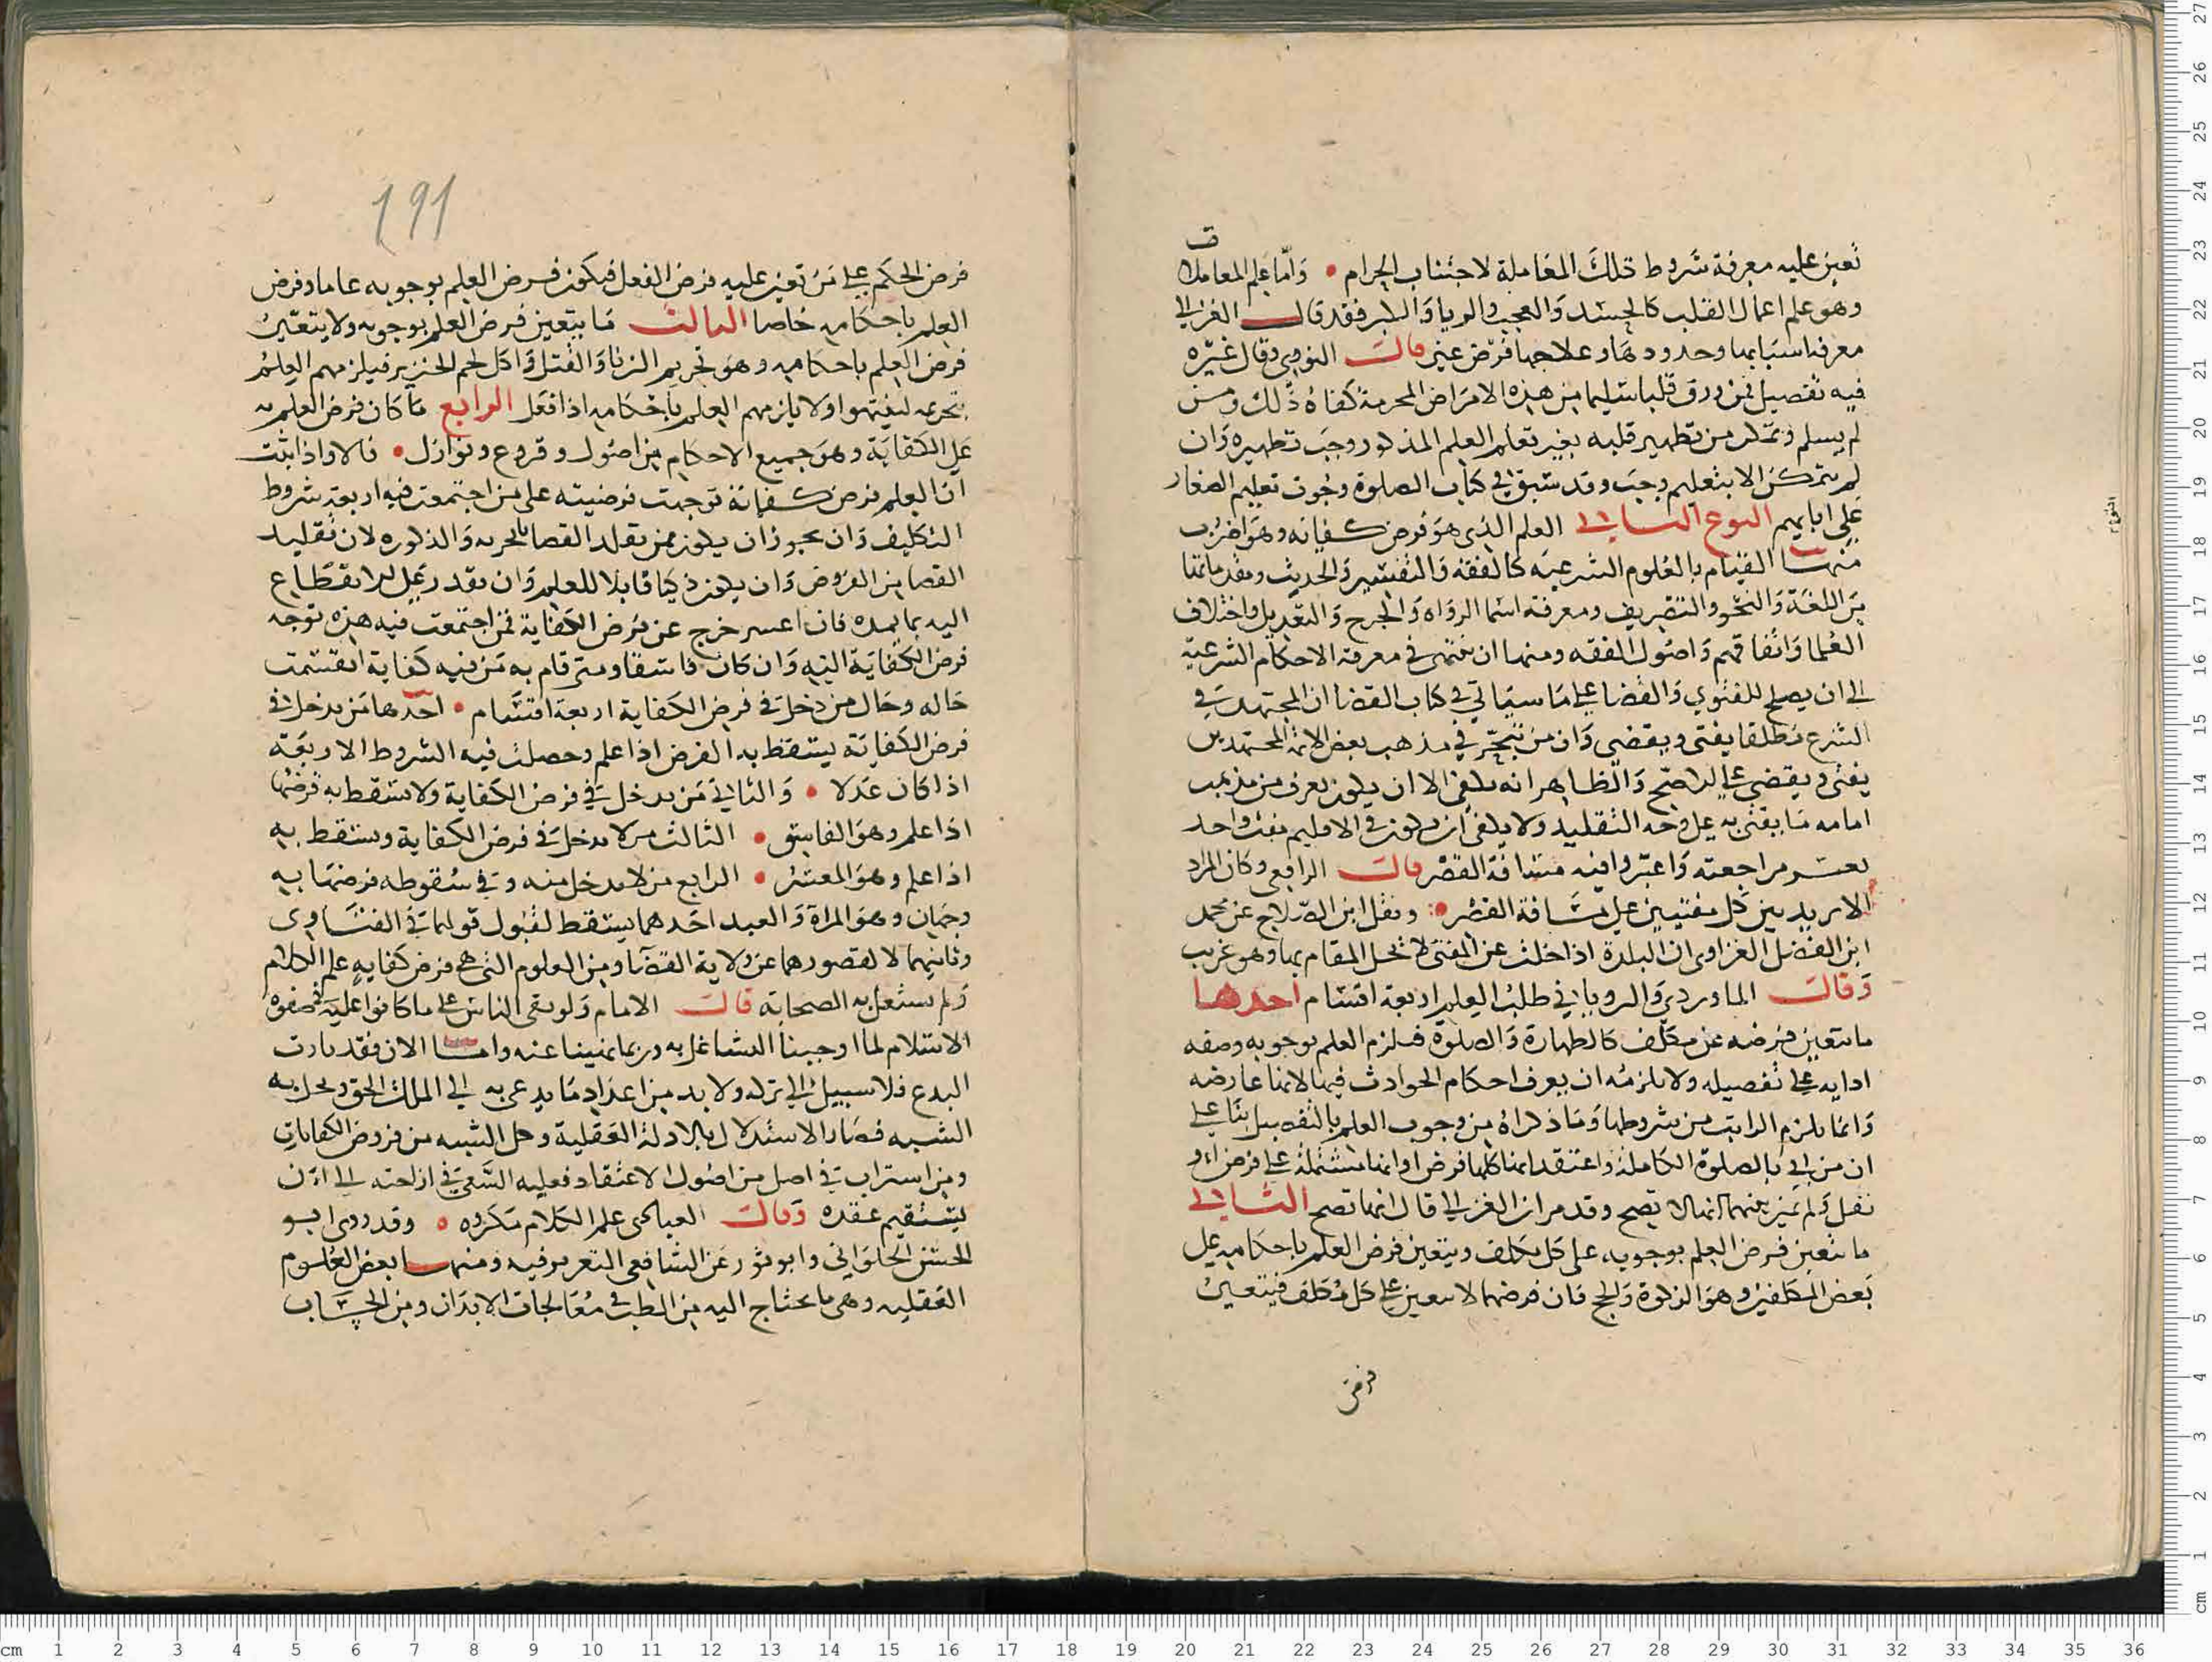 تعين عليه معرفة شروط تلك المعاملة لاجتناب الحرام • وأما علم المعاملات
وهو علم اعمال القلب كالحسد والعجب والريا والكبر فقد قال الغزالي
معرفة اسبابها وحدودها وعلاجها فرض عين قال النووي وقال غيره
فيه تفصيل فمن رزق قلبا سليما من هذه الامراض المحرمة كفاه ذلك ومن
لم يسلم وتمكن من تطهير قلبه بغير تعلم العلم المذكور وجب تطهيره وان
لم يتمكن الا بتعلمه وجب وقد سبق في كتاب الصلوة وجوب تعليم الصغار
على ابايهم النوع الثاني العلم الذي هو فرض كفاية وهو اضرب
منها القيام بالعلوم الشرعية كالفقه والتفسير والحديث ومقدماتها
من اللغة والنحو والتصريف ومعرفة اسما الرواة والجرح والتعديل واختلاف
العلما واتفاقهم واصول الفقه ومنها ان ينتهى في معرفة الاحكام الشرعية
الى ان يصلح للفتوي والقضا على ما سياتي في كتاب القضا ان المجتهد في
الشرع مطلقا يفتى ويقضى وان من تبحر في مذهب بعض الائمة المجتهدين
يفتى ويقضى على الاصح والظاهر انه يكفى الا ان يكون يعرف من مذهب
امامه ما يفتى به على وجه التقليد ولا يكفى ان يكون في الاقليم مفت واحد
تعسر مراجعته واعتبروا فيه مسافة القصر قال الرافعي وكان المراد
الا يزيد بين كل مفتيين على مسافة القصر • ونقل ابن الصلاح عن محمد
ابن الفضل الفزاوى ان البلدة اذا خلت عن المفتى لا تحل المقام بها وهو غريب
وقال الماوردي والروياني طلب العلم اربعة اقسام احدها
ما يتعين فرضه عن مكلف كالطهارة والصلوة فيلزم العلم بوجوبه وصفه
ادايه على تفصيله ولا يلزمه ان يعرف احكام الحوادث فيها لانها عارضه
وانما يلزم الراتب من شروطها وما ذكراه من وجوب العلم بالتفصيل بنا على
ان من اتى بالصلوة الكاملة واعتقد انها كلها فرض او انها مشتملة على فرض او
نفل ولم يميز بينهما انها لا تصح وقد مر ان الغزالي قال انها تصح الثاني
ما يتعين فرض العلم بوجوبه على كل مكلف ويتعين فرض العلم باحكامه على
بعض المكلفين وهو الزكوة والحج فان فرضها لا يتعين على كل مكلف فيتعين
فرض
191
فرض الحكم على من تعين عليه فرض الفعل فيكون فرض العلم بوجوبه عاما وفرض
العلم باحكامه خاصا الثالث ما يتعين فرض العلم بوجوبه ولا يتعين
فرض العلم باحكامه وهو تحريم الزنا والقتل واكل لحم الخنزير فيلزمهم العلم
بتحريمه لينتهوا ولا يلزمهم العلم باحكامه اذا فعل الرابع ما كان فرض العلم به
على الكفاية وهو جميع الاحكام من اصول وفروع ونوازل • قالا واذا ثبت
ان العلم فرض كفاية توجهت فرضيته على من اجتمعت فيه اربعة شروط
التكليف وان يجوز ان يكون ممن تقلد القضا بالحرية والذكورة لان تقليد
القضا من الفروض وان يكون ذكيا قابلا للعلم وان يقدر على الانقطاع
اليه بما يمده فان اعسر خرج عن فرض الكفاية فمن اجتمعت فيه هذه توجه
فرض الكفاية اليه وان كان فاسقا ومتى قام به من فيه كفاية انقسمت
حاله وحال من دخل في فرض الكفاية اربعة اقسام • احدها من يدخل في
فرض الكفاية يسقط به الفرض اذا علم وحصلت فيه الشروط الاربعة
اذا كان عدلا • والثاني من يدخل في فرض الكفاية ولا يسقط به فرضها
اذا علم وهو الفاسق • الثالث من لا يدخل في فرض الكفاية ويسقط به
اذا علم وهو المعسر • الرابع من لا يدخل منه وفي سقوطه فرضها به
وجهان وهو المراة والعبد احدهما يسقط لقبول قولهما في الفتاوى
وثانيهما لا لقصورهما عن ولاية القضا ومن العلوم التى هي فرض كفايه علم الكلام
ولم يستعمل به الصحابه قال الامام ولو بقى الناس على ما كانوا عليه في صفوة
الاسلام لما اوجبنا التشاغل به وربما نهينا عنه واما الان فقد ثارت
البدع فلا سبيل الى تركه ولا بد من اعداد ما يدعى به الى الملك الحق ويحل به
الشبه فصار الاستدلال بالادلة العقلية وحل الشبه من فروض الكفايات
ومن استراب في اصل من اصول الاعتقاد فعليه السعى في ازاحته الى ان
يستقيم عقده وقال العبا علم الكلام مكروه • وقد روى ابو
الحسن الحلواني وابو ثور عن الشافعى التعريم فيه ومنها بعض العلوم
العقليه وهى ما يحتاج اليه من الطب في معالجات الابدان ومن الحساب